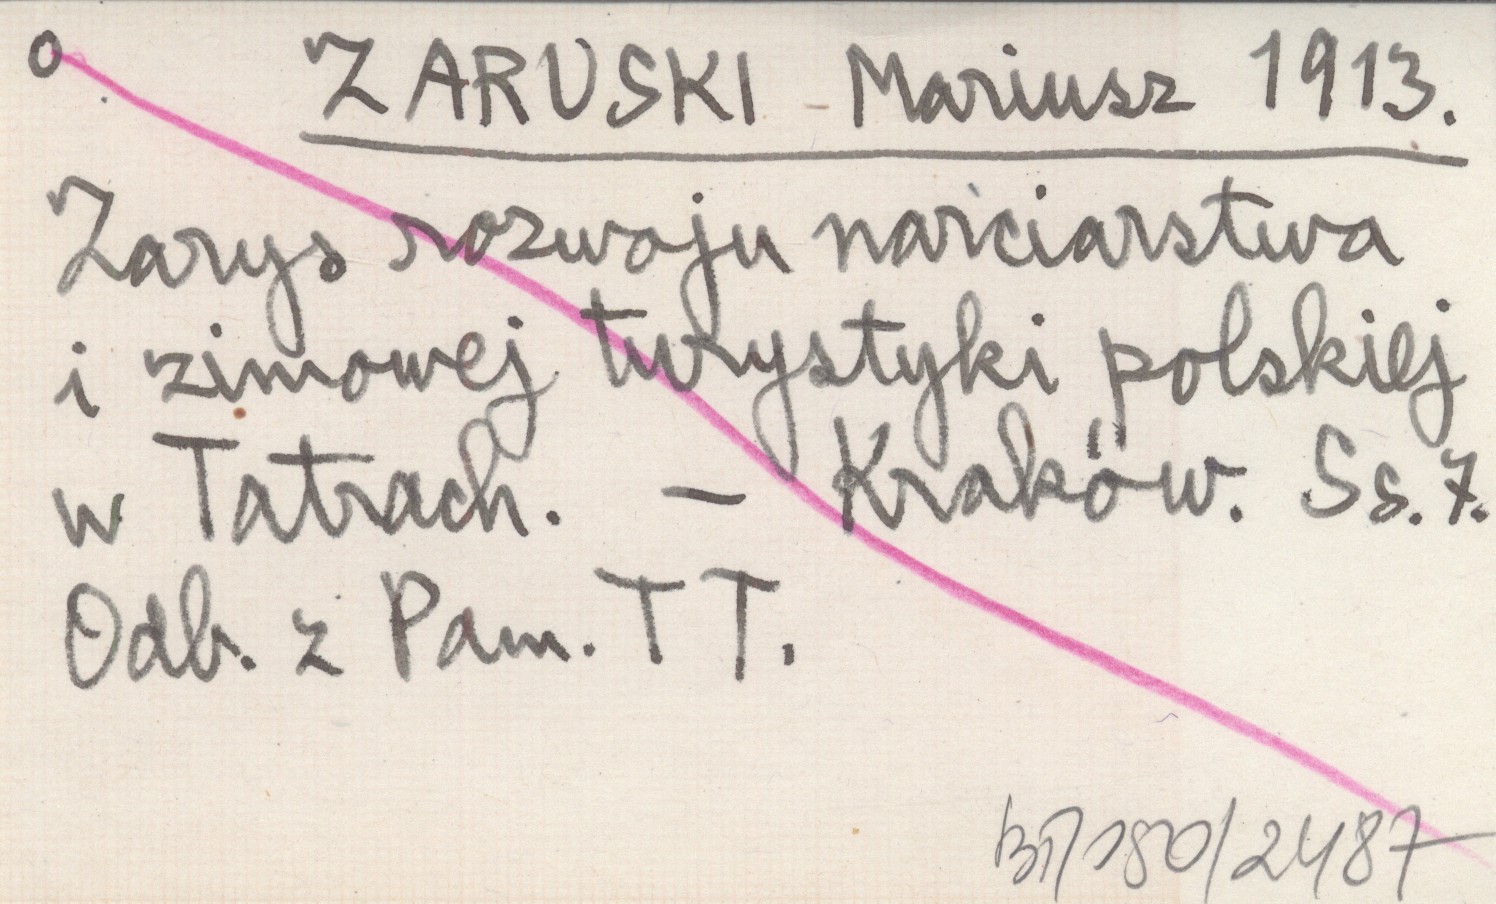 o ZARUSKI Mariusz 1913.
Zarys rozwoju narciarstwa
i zimowej turystyki polskiej
w Tatrach. – Kraków. Ss. 7.
Odb. z Pam. TT.
180/2487